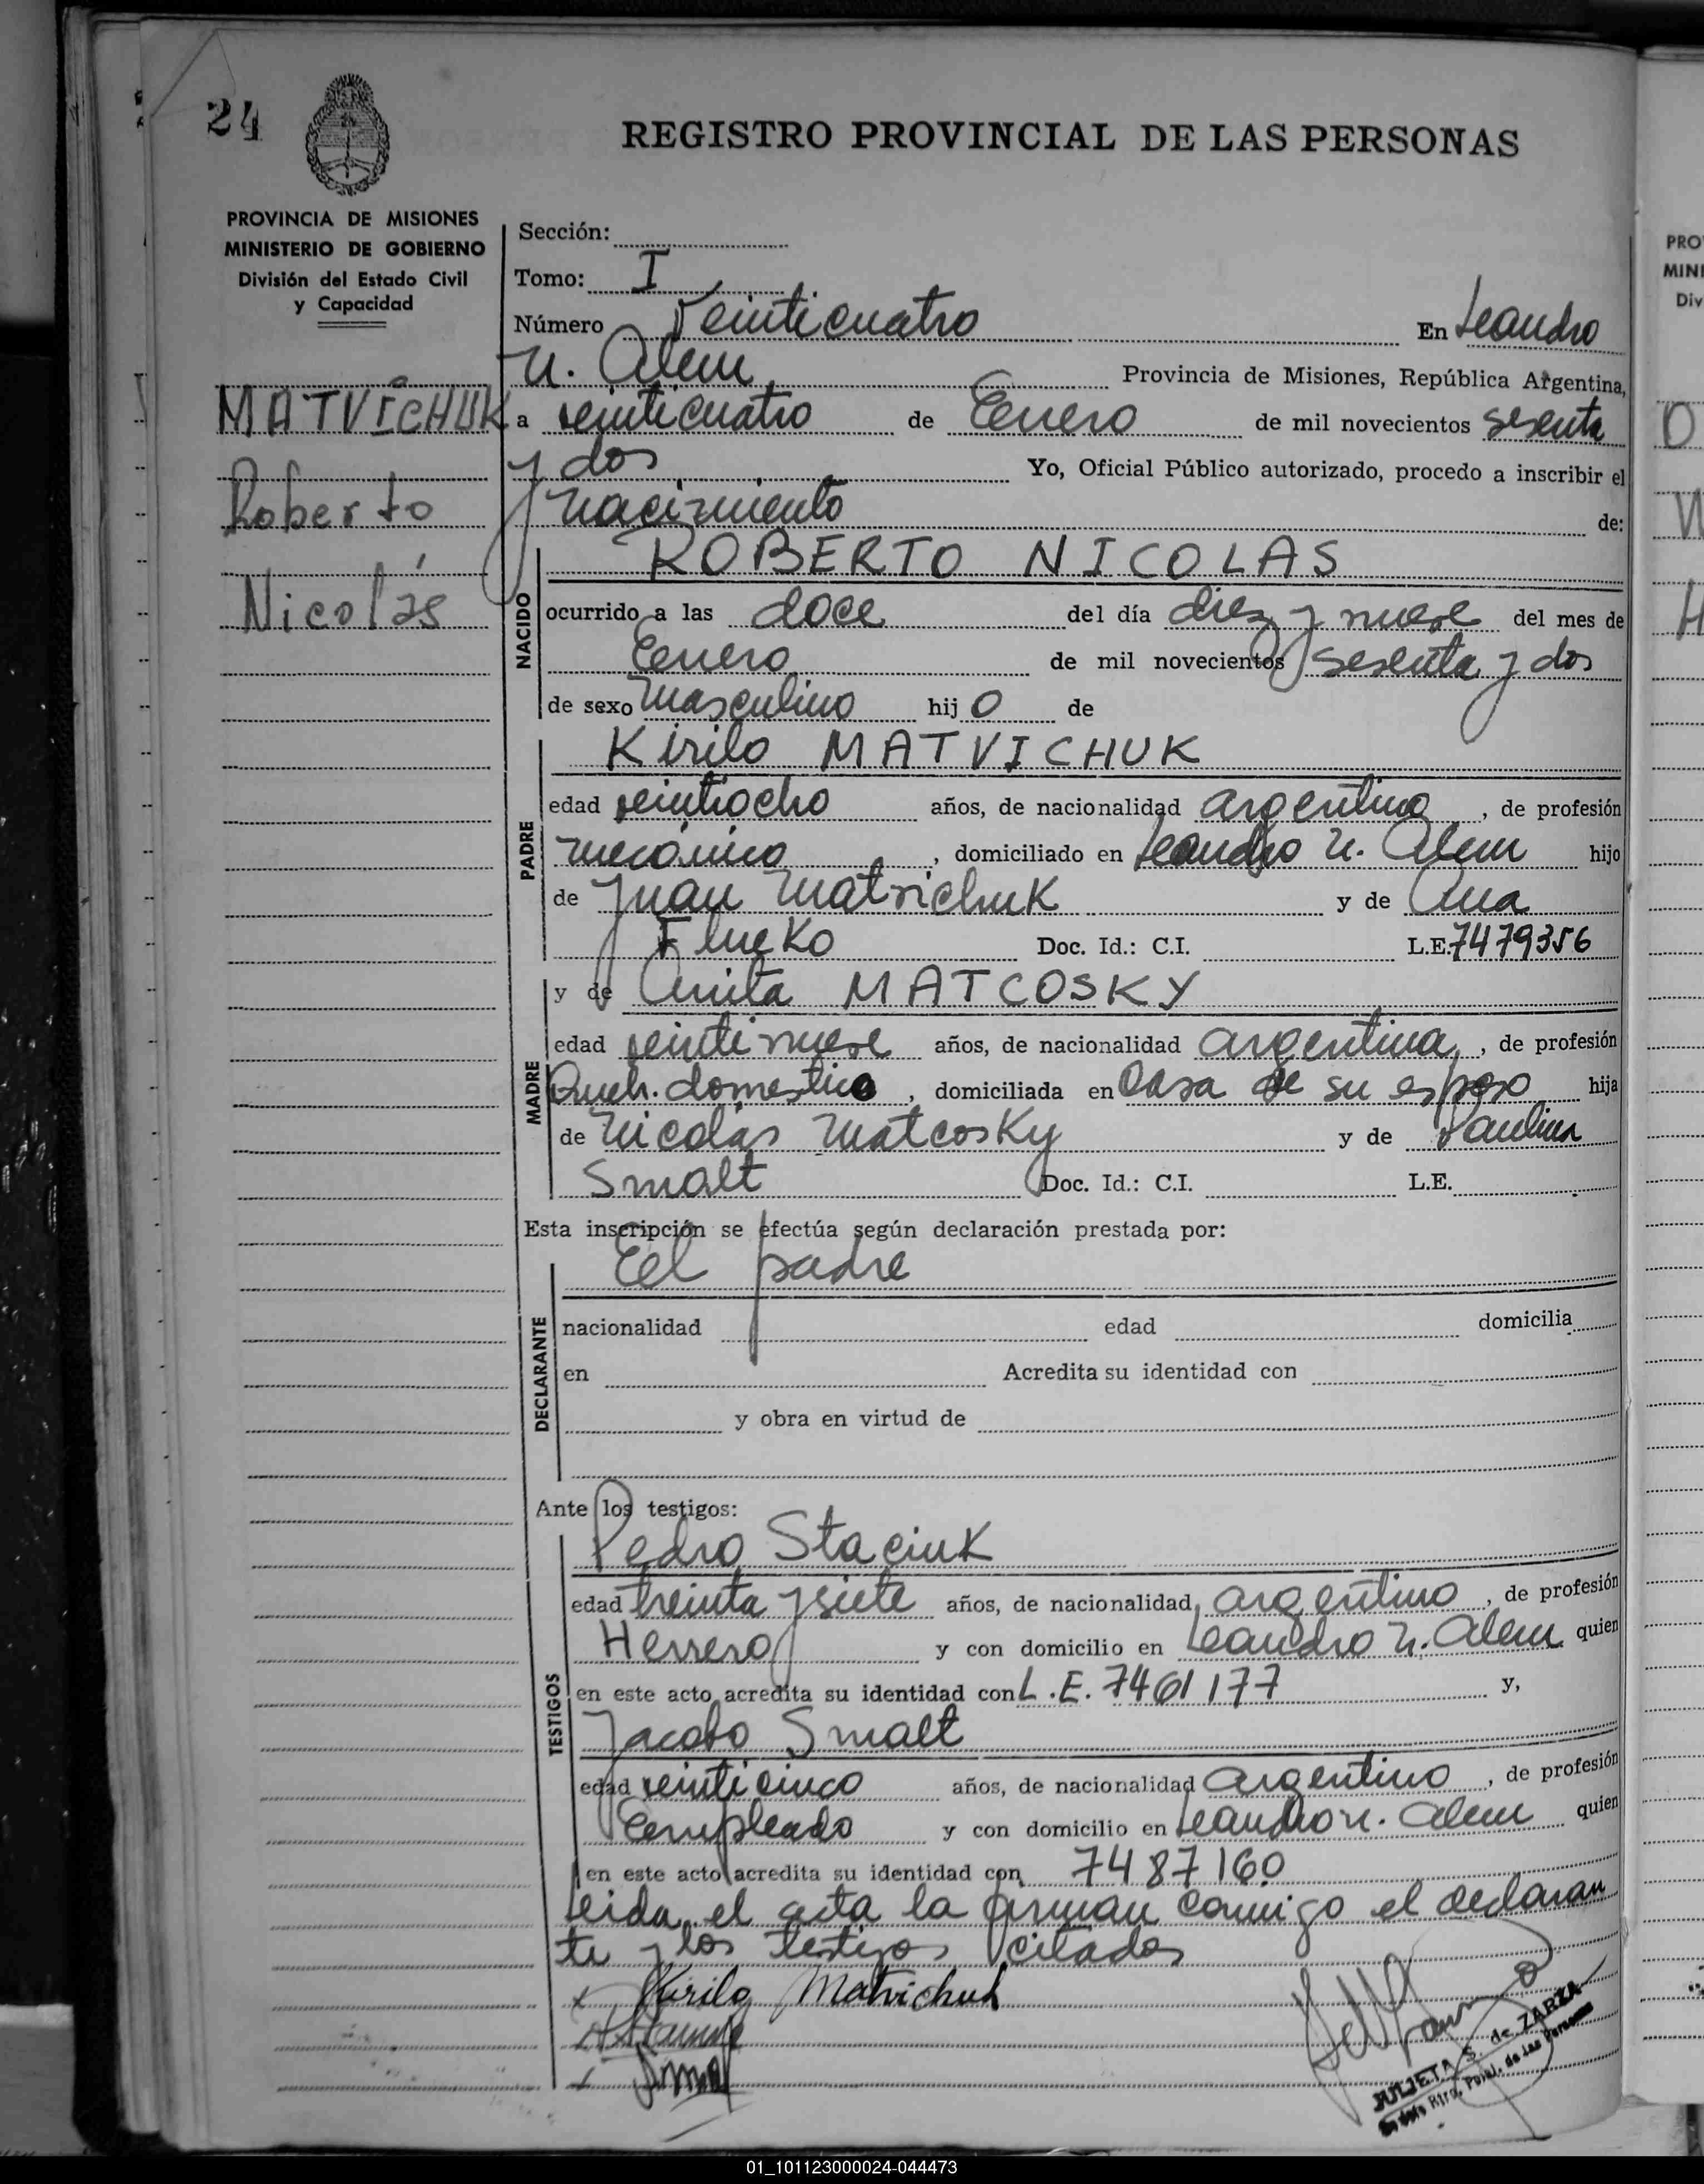 24
REGISTRO PROVINCIAL DE LAS PERSONAS
PROVINCIA DE MISIONES
MINISTERIO DE GOBIERNO
División del Estado Civil
y Capacidad
MATVICHUK
Roberto
Nicolás
Sección:
Tomo: I
Número Veinticuatro En Leandro
N. Alem Provincia de Misiones, República Argentina,
a veinticuatro de Enero de mil novecientos sesenta
y dos Yo, Oficial Público autorizado, procedo a inscribir el
nacimiento de:
NACIDO
ROBERTO NICOLAS
ocurrido a las doce del día diez y nueve del mes de
Enero de mil novecientos sesenta y dos
de sexo masculino hijo de
PADRE
Kirilo MATVICHUK
edad veintiocho años, de nacionalidad argentino, de profesión
mecánico, domiciliado en Leandro N. Alem hijo
de Juan Matvichuk y de Ana
Doc. Id.: C.I. L.E. 7479356
MADRE
y de Anita MATCOSKY
edad veintinueve años, de nacionalidad argentina, de profesión
Queh. domestico, domiciliada en Casa de su esposo hija
de Nicolás Matcosky y de Paulina
Smalt Doc. Id.: C.I. L.E.
Esta inscripción se efectúa según declaración prestada por:
DECLARANTE
El padre
nacionalidad edad domicilia
en Acredita su identidad con
y obra en virtud de
Ante los testigos:
TESTIGOS
Pedro Staciuk
edad treinta y siete años, de nacionalidad argentino, de profesión
Herrero y con domicilio en Leandro N. Alem quien
en este acto acredita su identidad con L.E. 7461177 y,
Jacobo Smalt
edad veinticinco años, de nacionalidad argentino, de profesión
Empleado y con domicilio en Leandro N. Alem quien
en este acto acredita su identidad con 7487160
Leida el acta la firman conmigo el declaran
te y los testigos citados
x Kirilo Matvichuk
JULIETA S. de ZARZA
PRO
MINI
Div
01_101123000024-044473